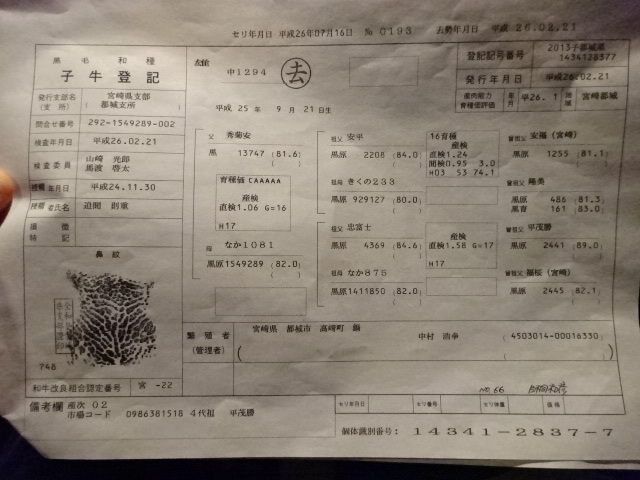 セリ年月日 平成26年07月16日 № 0193 去勢年月日 平成 26.02.21
黒毛和種
子牛登記
名号
中1294
去
平成 25年 9月 21日生
登記記号番号 2013子都城黒
1434128377
発行年月日 平成26.02.21
産肉能力
育種価評価 年月 平26.1 地域 宮崎都城
発行支部名
(支所) 宮崎県支部
(都城支所)
問合せ番号 292-1549289-002
検査年月日 平成26.02.21
検査委員 山崎
馬渡 啓太
授精年月日 平成24.11.30
授精者氏名 迫間 則重
損徴
特記
鼻紋
748
和牛改良組合認定番号 宮 -22
父 秀菊安
黒 13747 (81.6)
育種価 CAAAAA
産検
直検1.06 G=16
H17
母 なか1081
黒原1549289 (82.0)
祖父 安平
黒原 2208 (84.0)
祖母 きくの233
黒原 929127 (80.0)
祖父 忠富士
黒原 4369 (84.6)
祖母 なか875
黒原1411850 (82.0)
16育種
産検
直検1.24
間検0.95 3.0
H03 53 74.1
産検
直検1.58 G=17
H17
曽祖父 安福(宮崎)
黒原 1255 (81.1)
曽祖父 隆美
黒原 486 (81.3)
黒育 161 (83.0)
曽祖父 平茂勝
黒原 2441 (89.0)
曽祖父 福桜(宮崎)
黒原 2445 (82.1)
繁殖者
(管理者) 宮崎県 都城市 高崎町
中村 浩幸 (4503014-00016330)
No 66
セリ年月日 セリ番号 セリ体重 価格
備考欄 産次 02
市場コード 0986381518 4代祖 平茂勝
個体識別番号: 14341-2837-7